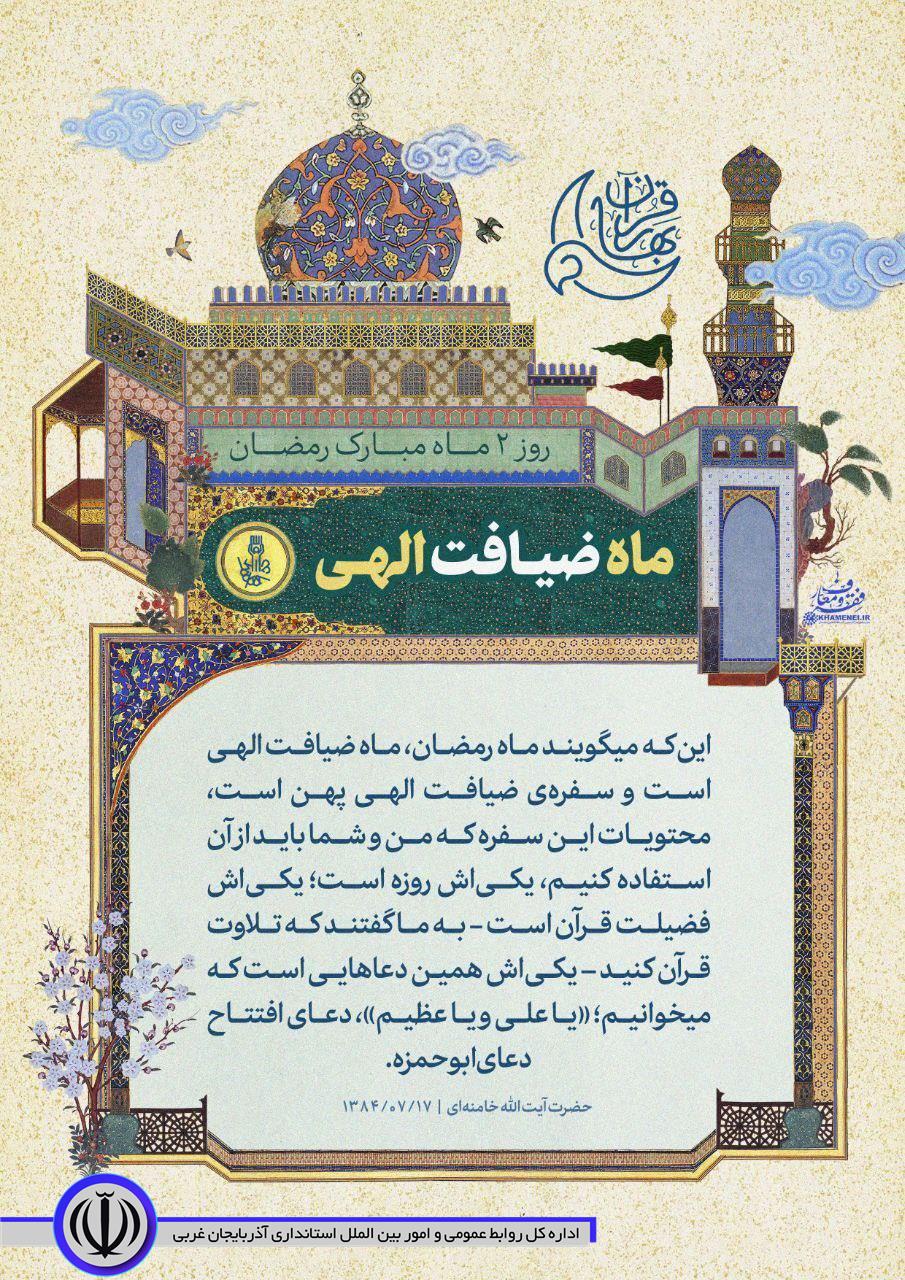 بهار قرآن
روز ۲ ماه مبارک رمضان
ماه ضیافت الهی
فقه و معارف
KHAMENEI.IR
این که میگویند ماه رمضان، ماه ضیافت الهی
است و سفره‌ی ضیافت الهی پهن است،
محتویات این سفره که من و شما باید از آن
استفاده کنیم، یکی‌اش روزه است؛ یکی‌اش
فضیلت قرآن است - به ما گفتند که تلاوت
قرآن کنید - یکی‌اش همین دعاهایی است که
میخوانیم؛ «یا علی و یا عظیم»، دعای افتتاح
دعای ابوحمزه.
حضرت آیت الله خامنه‌ای | ۱۳۸۴/۰۷/۱۷
اداره کل روابط عمومی و امور بین الملل استانداری آذربایجان غربی